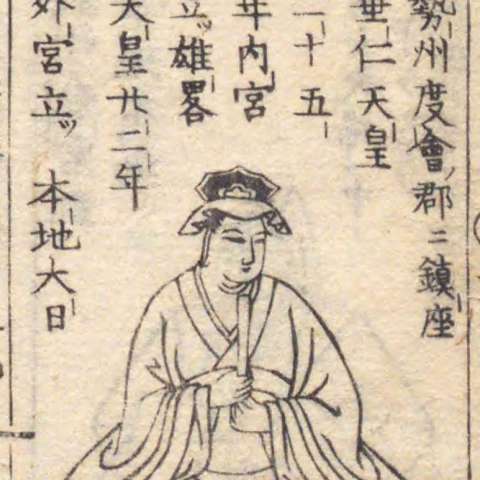 勢州度會ノ郡ニ鎮座
垂仁天皇
二十五
年内宮
立ッ雄畧
天皇廿二年
外宮立ッ 本地大日